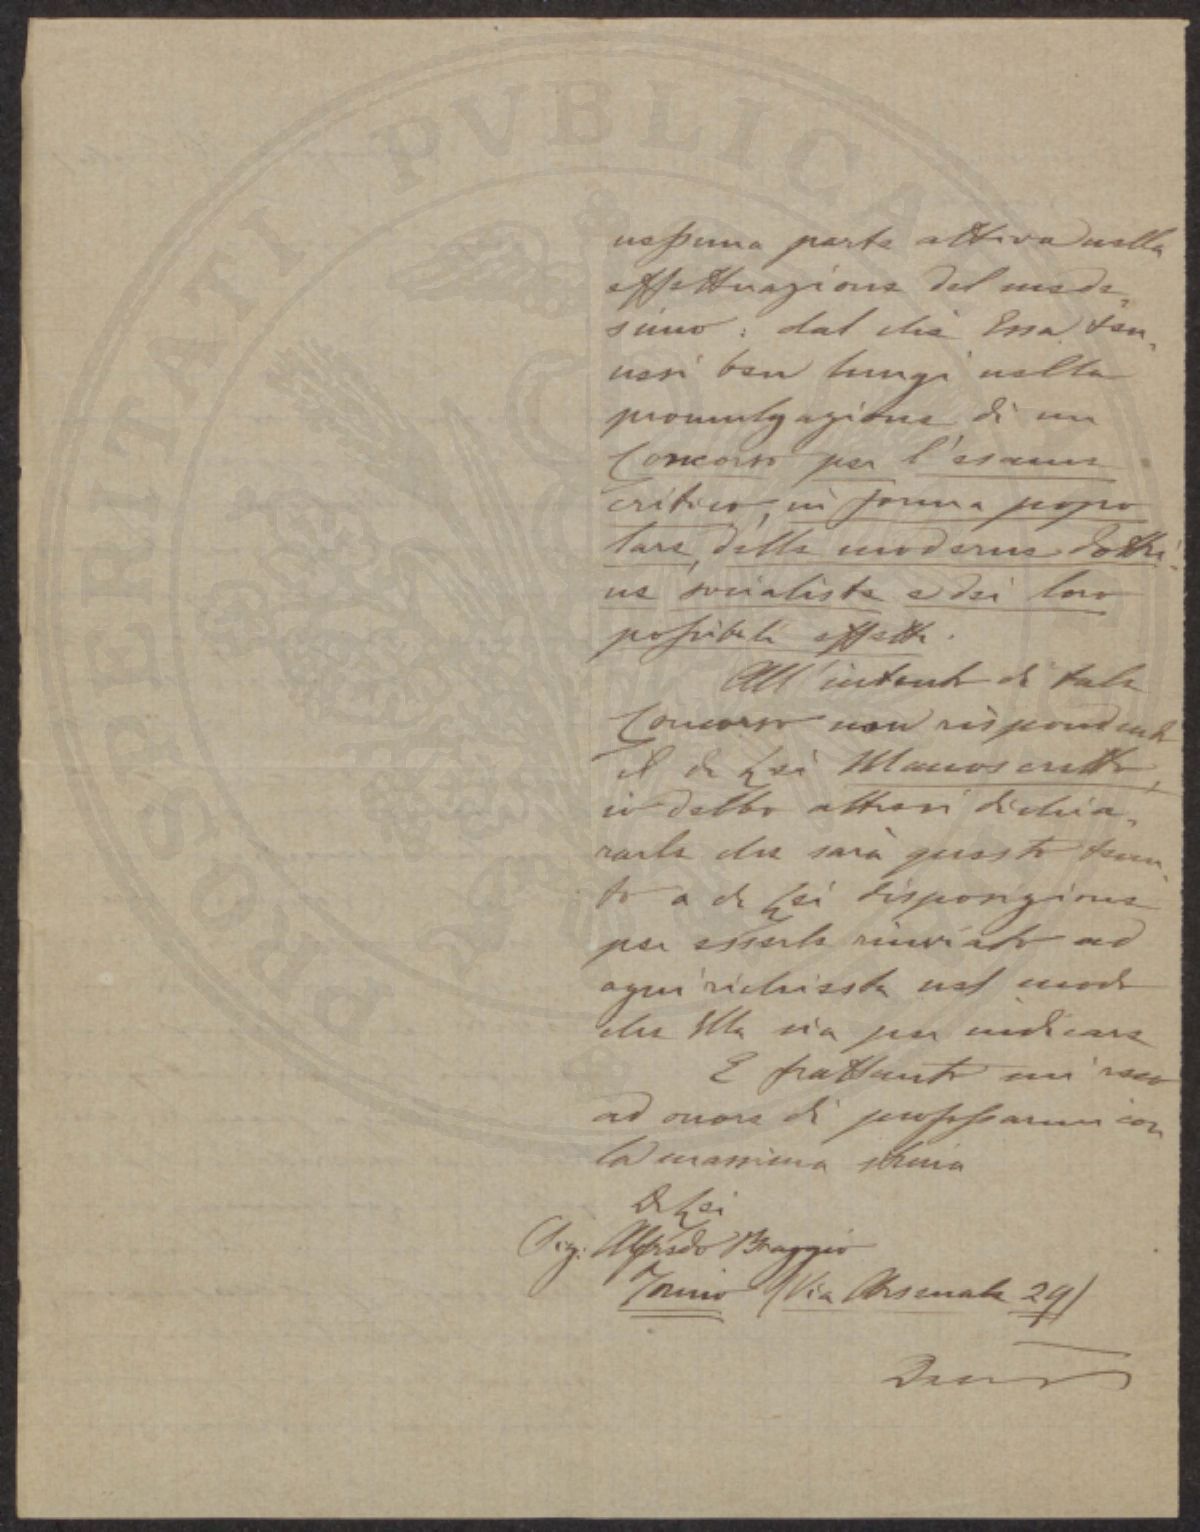 PROSPERITATI PVBLICAE
nessuna parte attiva nella
effettuazione del mede-
simo: dal che Essa ten-
nesi ben lungi nella
promulgazione di un
Concorso per l'esame
critico, in forma popo
lare, delle moderne dottri-
ne socialiste e dei loro
possibili effetti.
All'intento di tale
Concorso non rispondendo
il di Lei Manoscritto,
io debbo altresì dichia-
rarle che sarà questo tenu-
to a di Lei disposizione
per esserle rinviato ad
ogni richiesta nel modo
che Ella sia per indicare
E frattanto mi reco
ad onore di professarmi con
la massima stima
Di Lei
Sig. Alfredo Braggio
Torino (Via Arsenale 29)